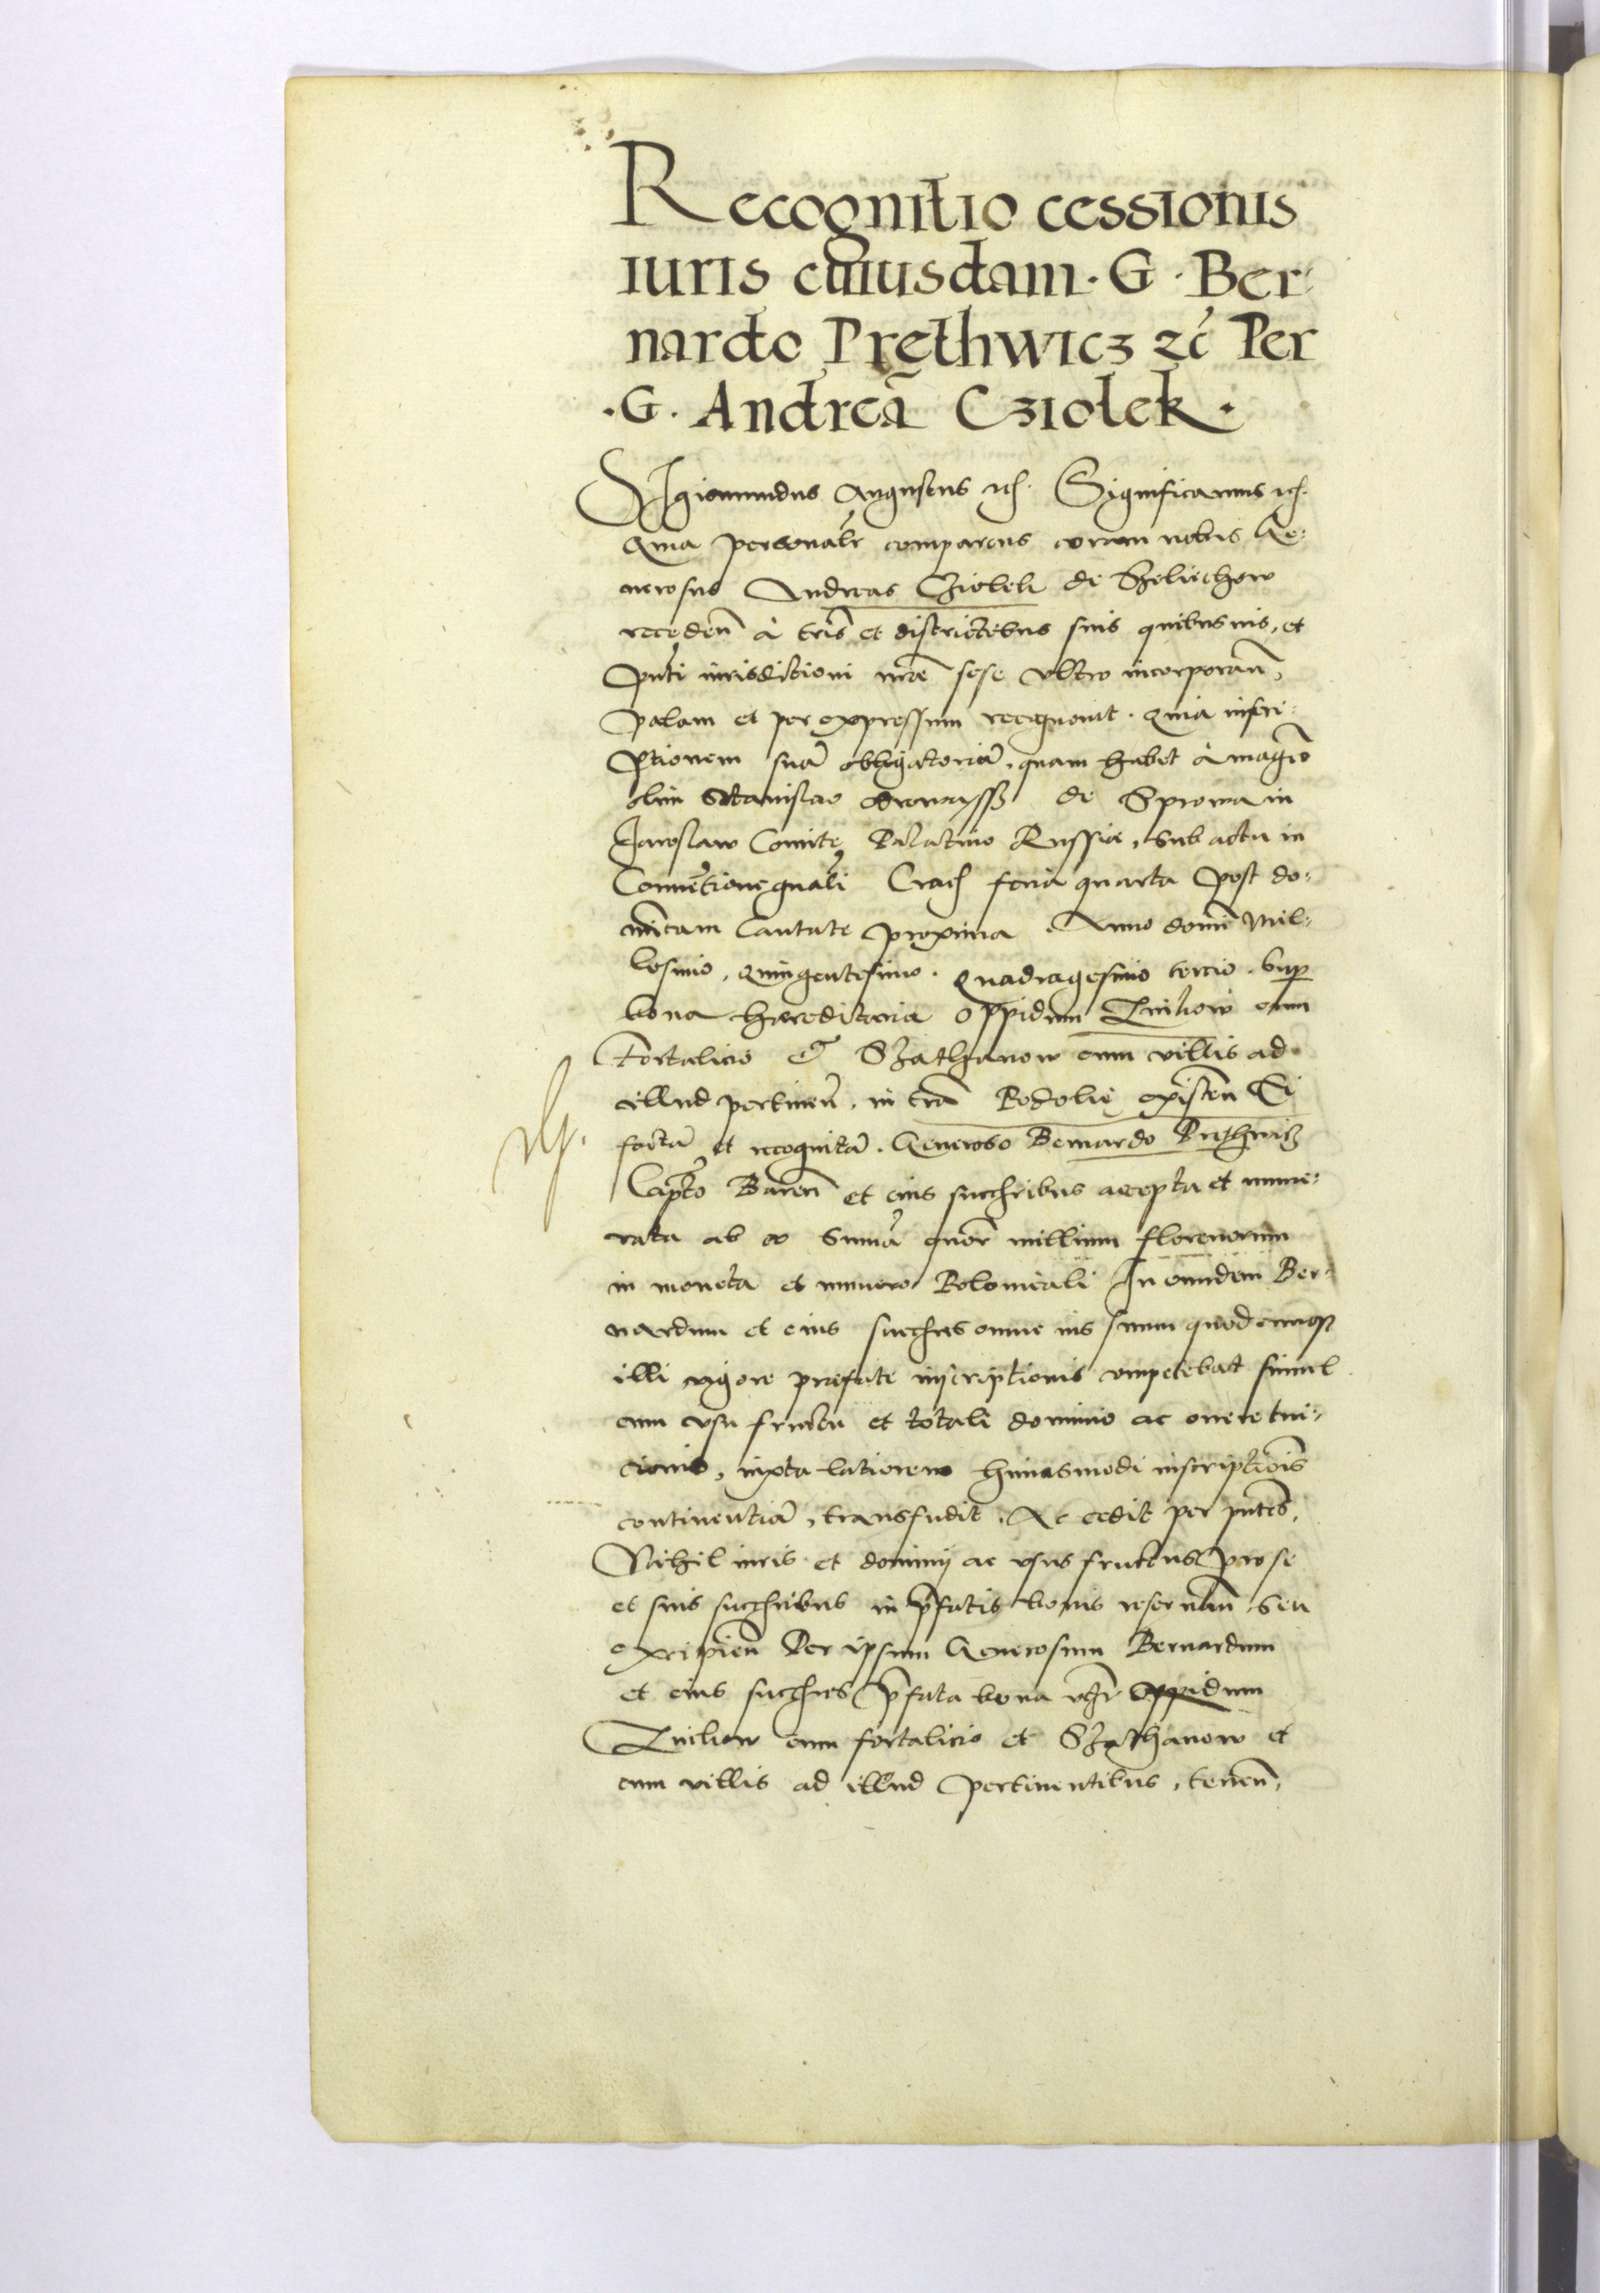 Recognitio cessionis
iuris cuiusdam · G · Ber:
nardo Prethwicz zc̃ Per
· G · Andreã Cziolek ·
Sigismundus Augustus zc̃. Significamus zc̃.
Quia personalr̃ comparens coram nobis Ge:
nerosus Andreas Cziolek de Zeliechow
recedeñ à tris̃ et districtibus suis quibusuis, et
pñti iurisdictioni nrẽ sese ultro incorporañ,
palam et per expressum recognouit. Quia inscri:
ptionem suã obligatoriã, quam habet à magco̅
olim Stanislao Odrowassz de Sprowa in
Jaroslaw Comite Palatino Russiae, sub actu in
Conuẽtione gnali Crac̃ feria quarta post do:
minicam Cantate proxima. Anno domi̅ Mil:
lesimo, Quingentesimo. Quadragesimo tercio. Sup
bona haereditaria Oppidum Zinkow cum
Fortalicio & Szathanow cum villis ad
illud pertineñ. in tra̅ Podolie existeñ Ei
factã et recognitã. Generoso Bernardo Prethwicz
Capto̅ Bareñ et eius succribus accepta et nume:
rata ab eo summa quor̃ millium florenorum
in moneta et numero Polonicali In eundem Ber:
nardum et eius succres omne ius suum quodcunq3
illi vigore prefate inscriptionis competebat simul
cum usu fructu et totali dominio ac onere tui:
cionis, iuxta latiorem huiusmodi inscriptiõis
continentiã, transfudit. Ac cedit per pñtes,
Nihil iuris et dominij ac usus fructus pro se
et suis succribus in p̃fatis bonis reseruañ seu
excipieñ Per ipsum Generosum Bernardum
et eius succres p̃fata bona vcz̃ Oppidum
Zinkow cum fortalicio et Szathanow et
cum villis ad illud pertinentibus, teneñ,